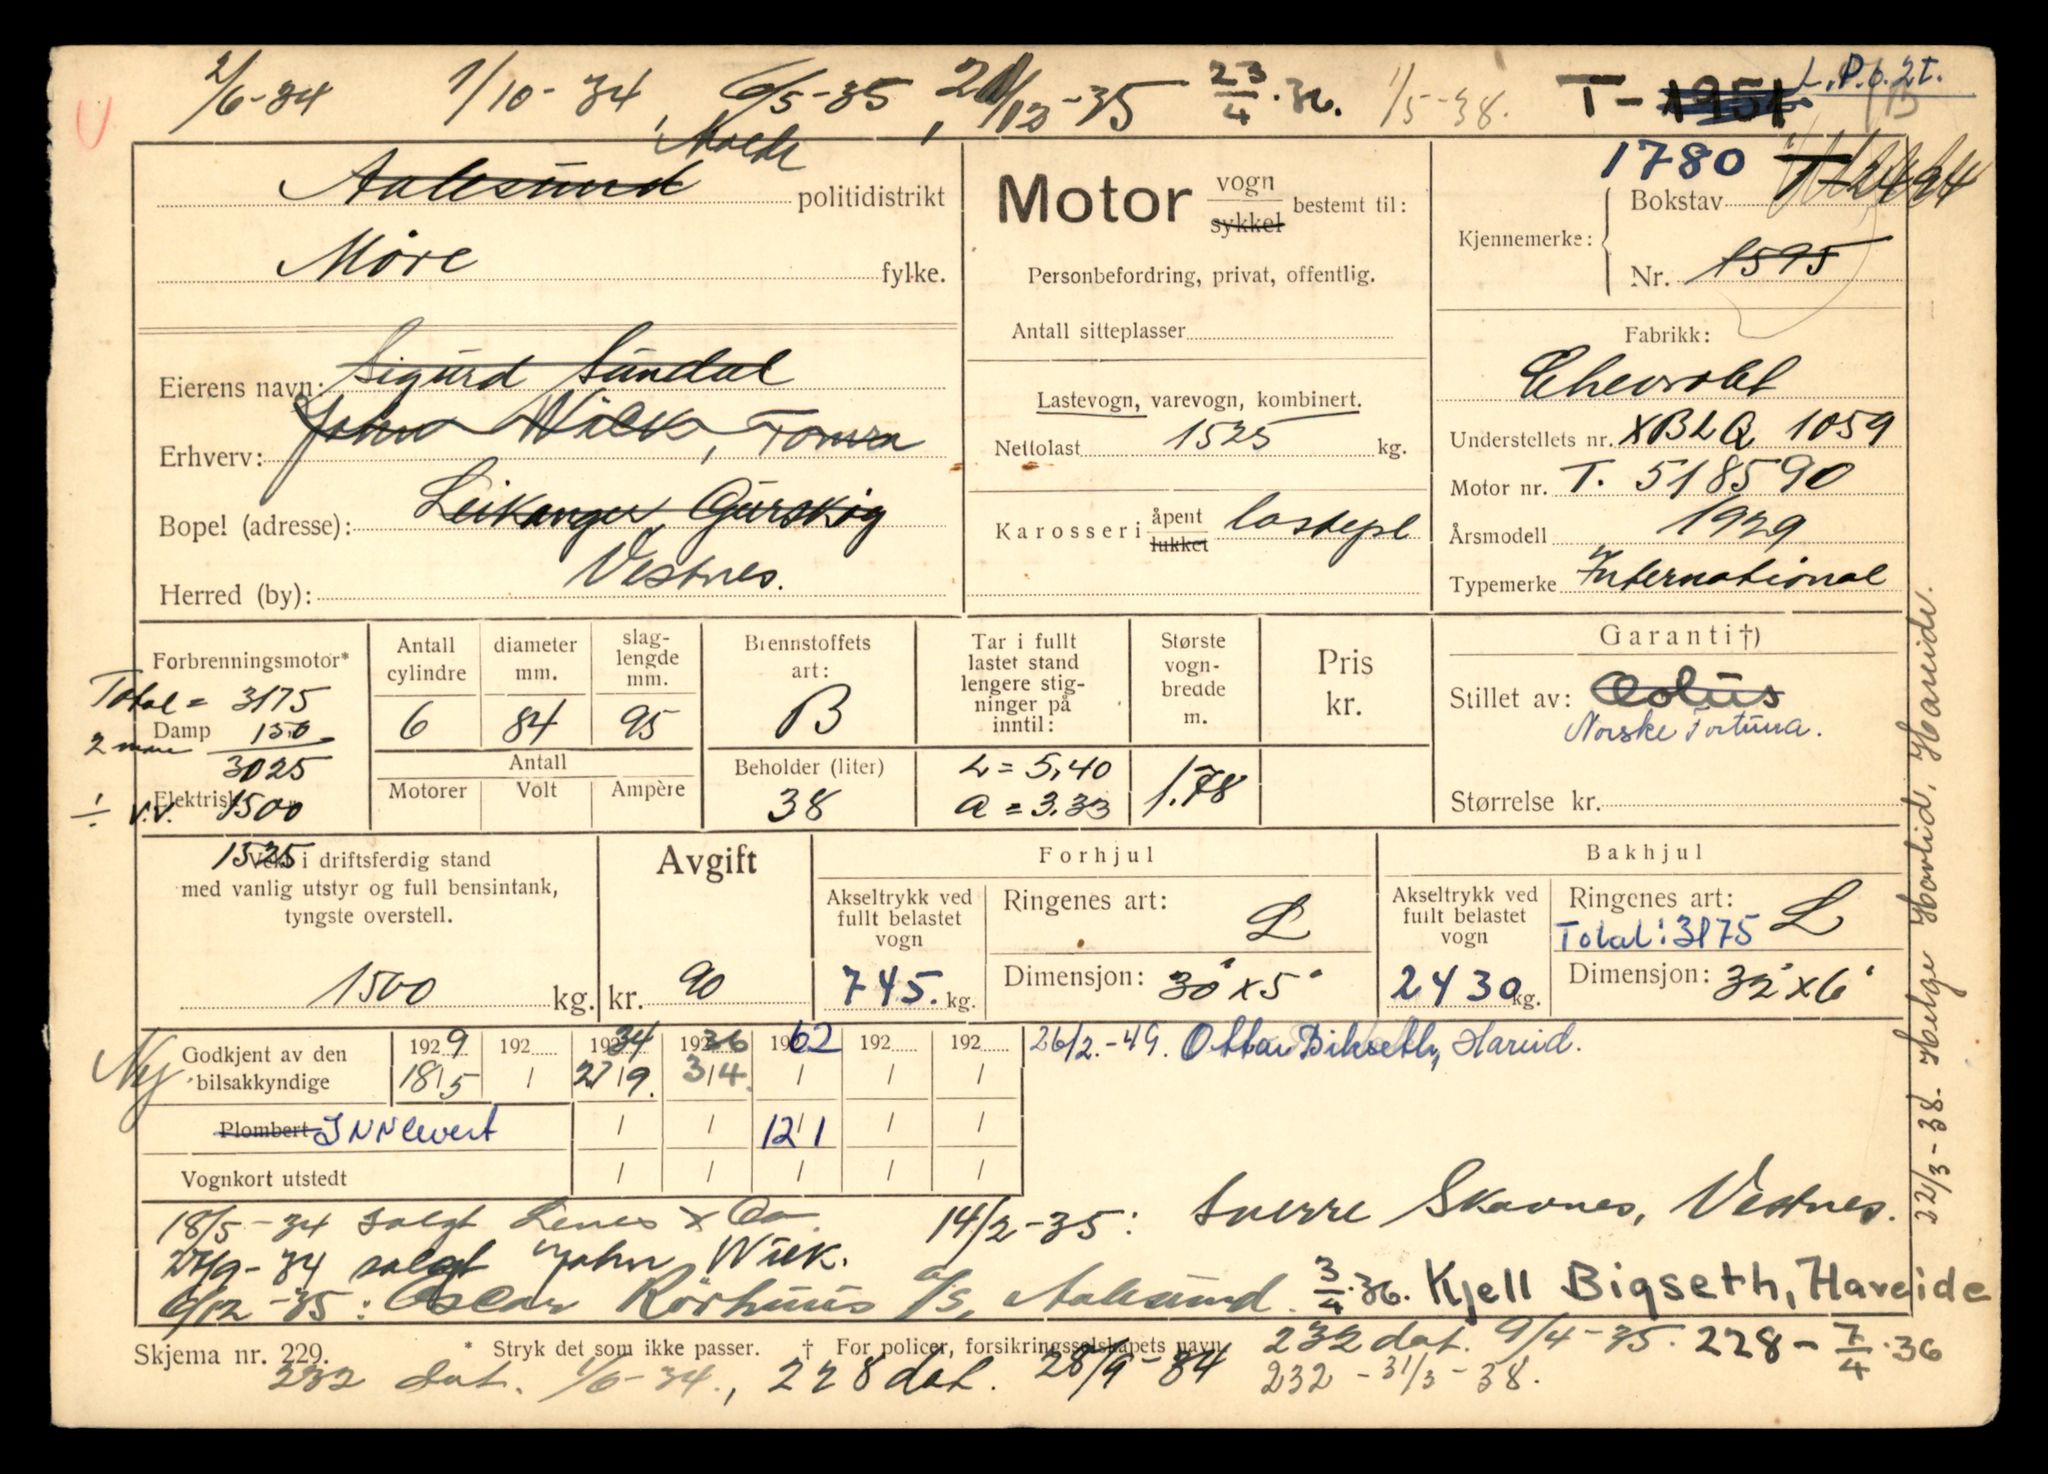 2/6-34 1/10-34, 6/5-35, 21/12-35 23/4.36. 1/5-38. T-1951 L.P.b.2t.
Molde 1780 T-2494
Aalesund politidistrikt
Møre fylke.
Motor vogn sykkel bestemt til:
Personbefordring, privat, offentlig.
Antall sitteplasser
Kjennemerke: Bokstav
Nr. 1595
Eierens navn: Sigurd Sundal
Erhverv: John Wiik, Tomra
Bopel (adresse): Leikanger Gurskøy
Herred (by): Vestnes.
Lastevogn, varevogn, kombinert.
Nettolast 1525 kg.
Karosseri åpent lukket lastepl
Fabrikk:
Chevrolet
Understellets nr. XBLQ 1059
Motor nr. T. 518590
Årsmodell 1929
Typemerke International
Forbrenningsmotor*
Total = 3175
Damp 150
2 mann 3025
Elektrisk
÷ v.v. 1500
1525
Antall cylindre 6
diameter mm. 84
slaglengde mm. 95
Antall
Motorer Volt Ampère
Brennstoffets art: B
Beholder (liter) 38
Tar i fullt lastet stand lengere stigninger på inntil:
L = 5,40
a = 3.33
Største vognbredde m. 1.78
Pris kr.
Garanti†)
Stillet av: Æolus
Norske Fortuna.
Størrelse kr.
Vekt i driftsferdig stand
med vanlig utstyr og full bensintank,
tyngste overstell.
1500 kg.
Avgift
kr. 90
Forhjul
Akseltrykk ved fullt belastet vogn 745. kg.
Ringenes art: L
Dimensjon: 30" x 5"
Bakhjul
Akseltrykk ved fullt belastet vogn 2430 kg.
Ringenes art: L
Total: 3175
Dimensjon: 32" x 6"
Ny
Godkjent av den bilsakkyndige
1929 192 1934 1936 1962 192 192
18/5 / 27/9. 3/4. / / /
Plombert INNlevert / / 12/1 / /
Vognkort utstedt / / / / /
26/2.-49. Ottar Bikseth, Hareid.
22/3-38. Helge Hovlid, Hareide.
18/5-34 solgt Lenes & Co. 14/2-35: Sverre Skavnes, Vestnes.
27/9-34 solgt John Wiik.
6/12-35: Oscar Rörhuus A/S, Aalesund. 3/4.36. Kjell Bigseth, Hareide
Skjema nr. 229. * Stryk det som ikke passer. † For policer, forsikringsselskapets navn.
232 dat. 9/4-35. 228 - 7/4.36
232 dat. 1/6-34., 228 dat. 28/9-34 232 - 31/3-38.